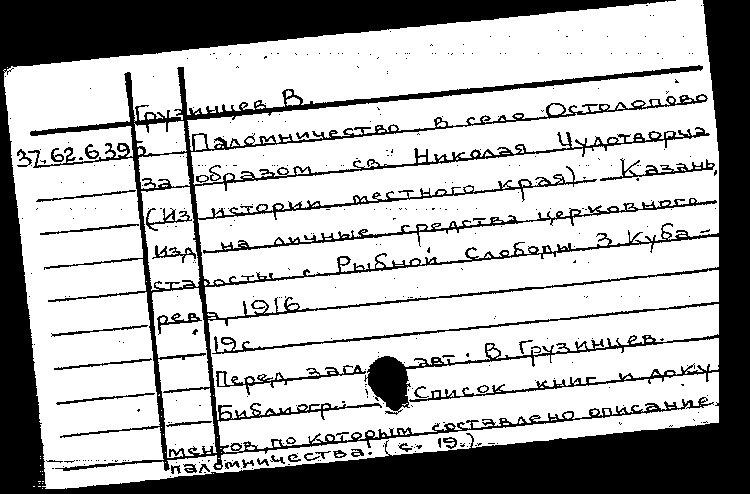 Грузинцев, В.
37.62.6.395. Паломничество в село Остолопово
за образом св. Николая Чудотворца
(Из истории местного края). Казань,
изд. на личные средства церковного
старосты с. Рыбной Слободы З. Куба-
рева, 1916.
19 с.
Перед загл. авт.: В. Грузинцев.
Библиогр.: Список книг и доку
ментов, по которым составлено описание
паломничества. (с. 19.).